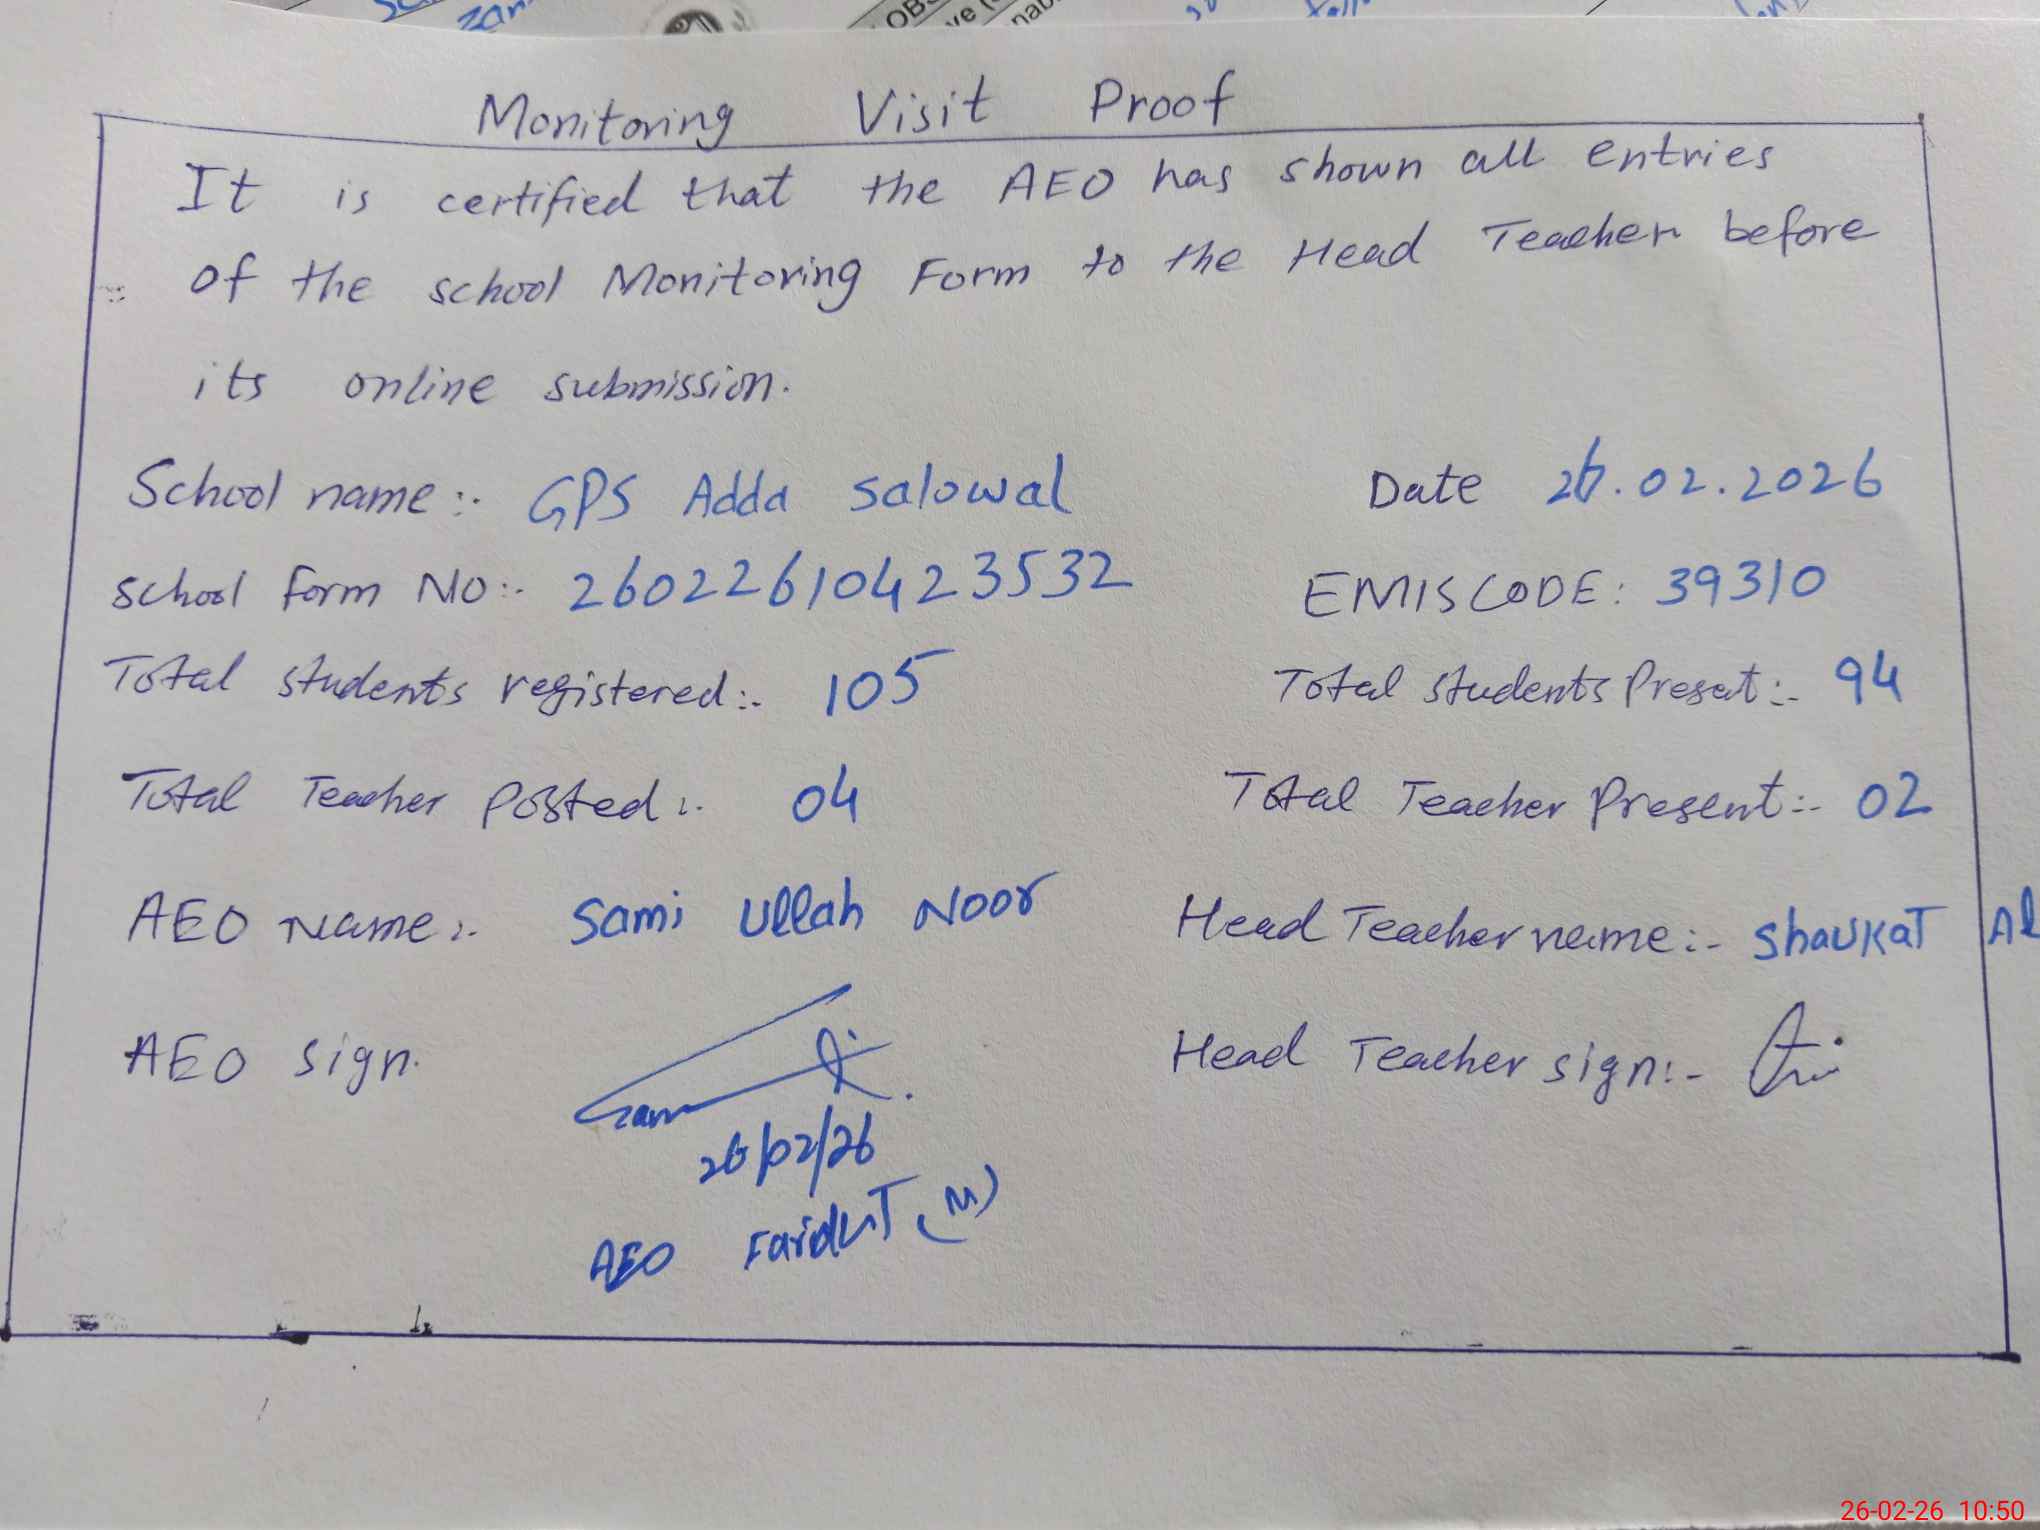 Monitoring Visit Proof
It is certified that the AEO has shown all entries
of the school Monitoring Form to the Head Teacher before
its online submission.
School name:- GPS Adda Salowal Date 26.02.2026
School Form No:- 26022610423532 EMISCODE: 39310
Total students registered:- 105 Total students Presat:- 94
Total Teacher Posted:- 04 Total Teacher Present:- 02
AEO Name:- Sami Ullah Noor Head Teacher name:- Shaukat Al
AEO sign. Head Teacher sign:-
26/02/26
AEO (M)
26-02-26 10:50